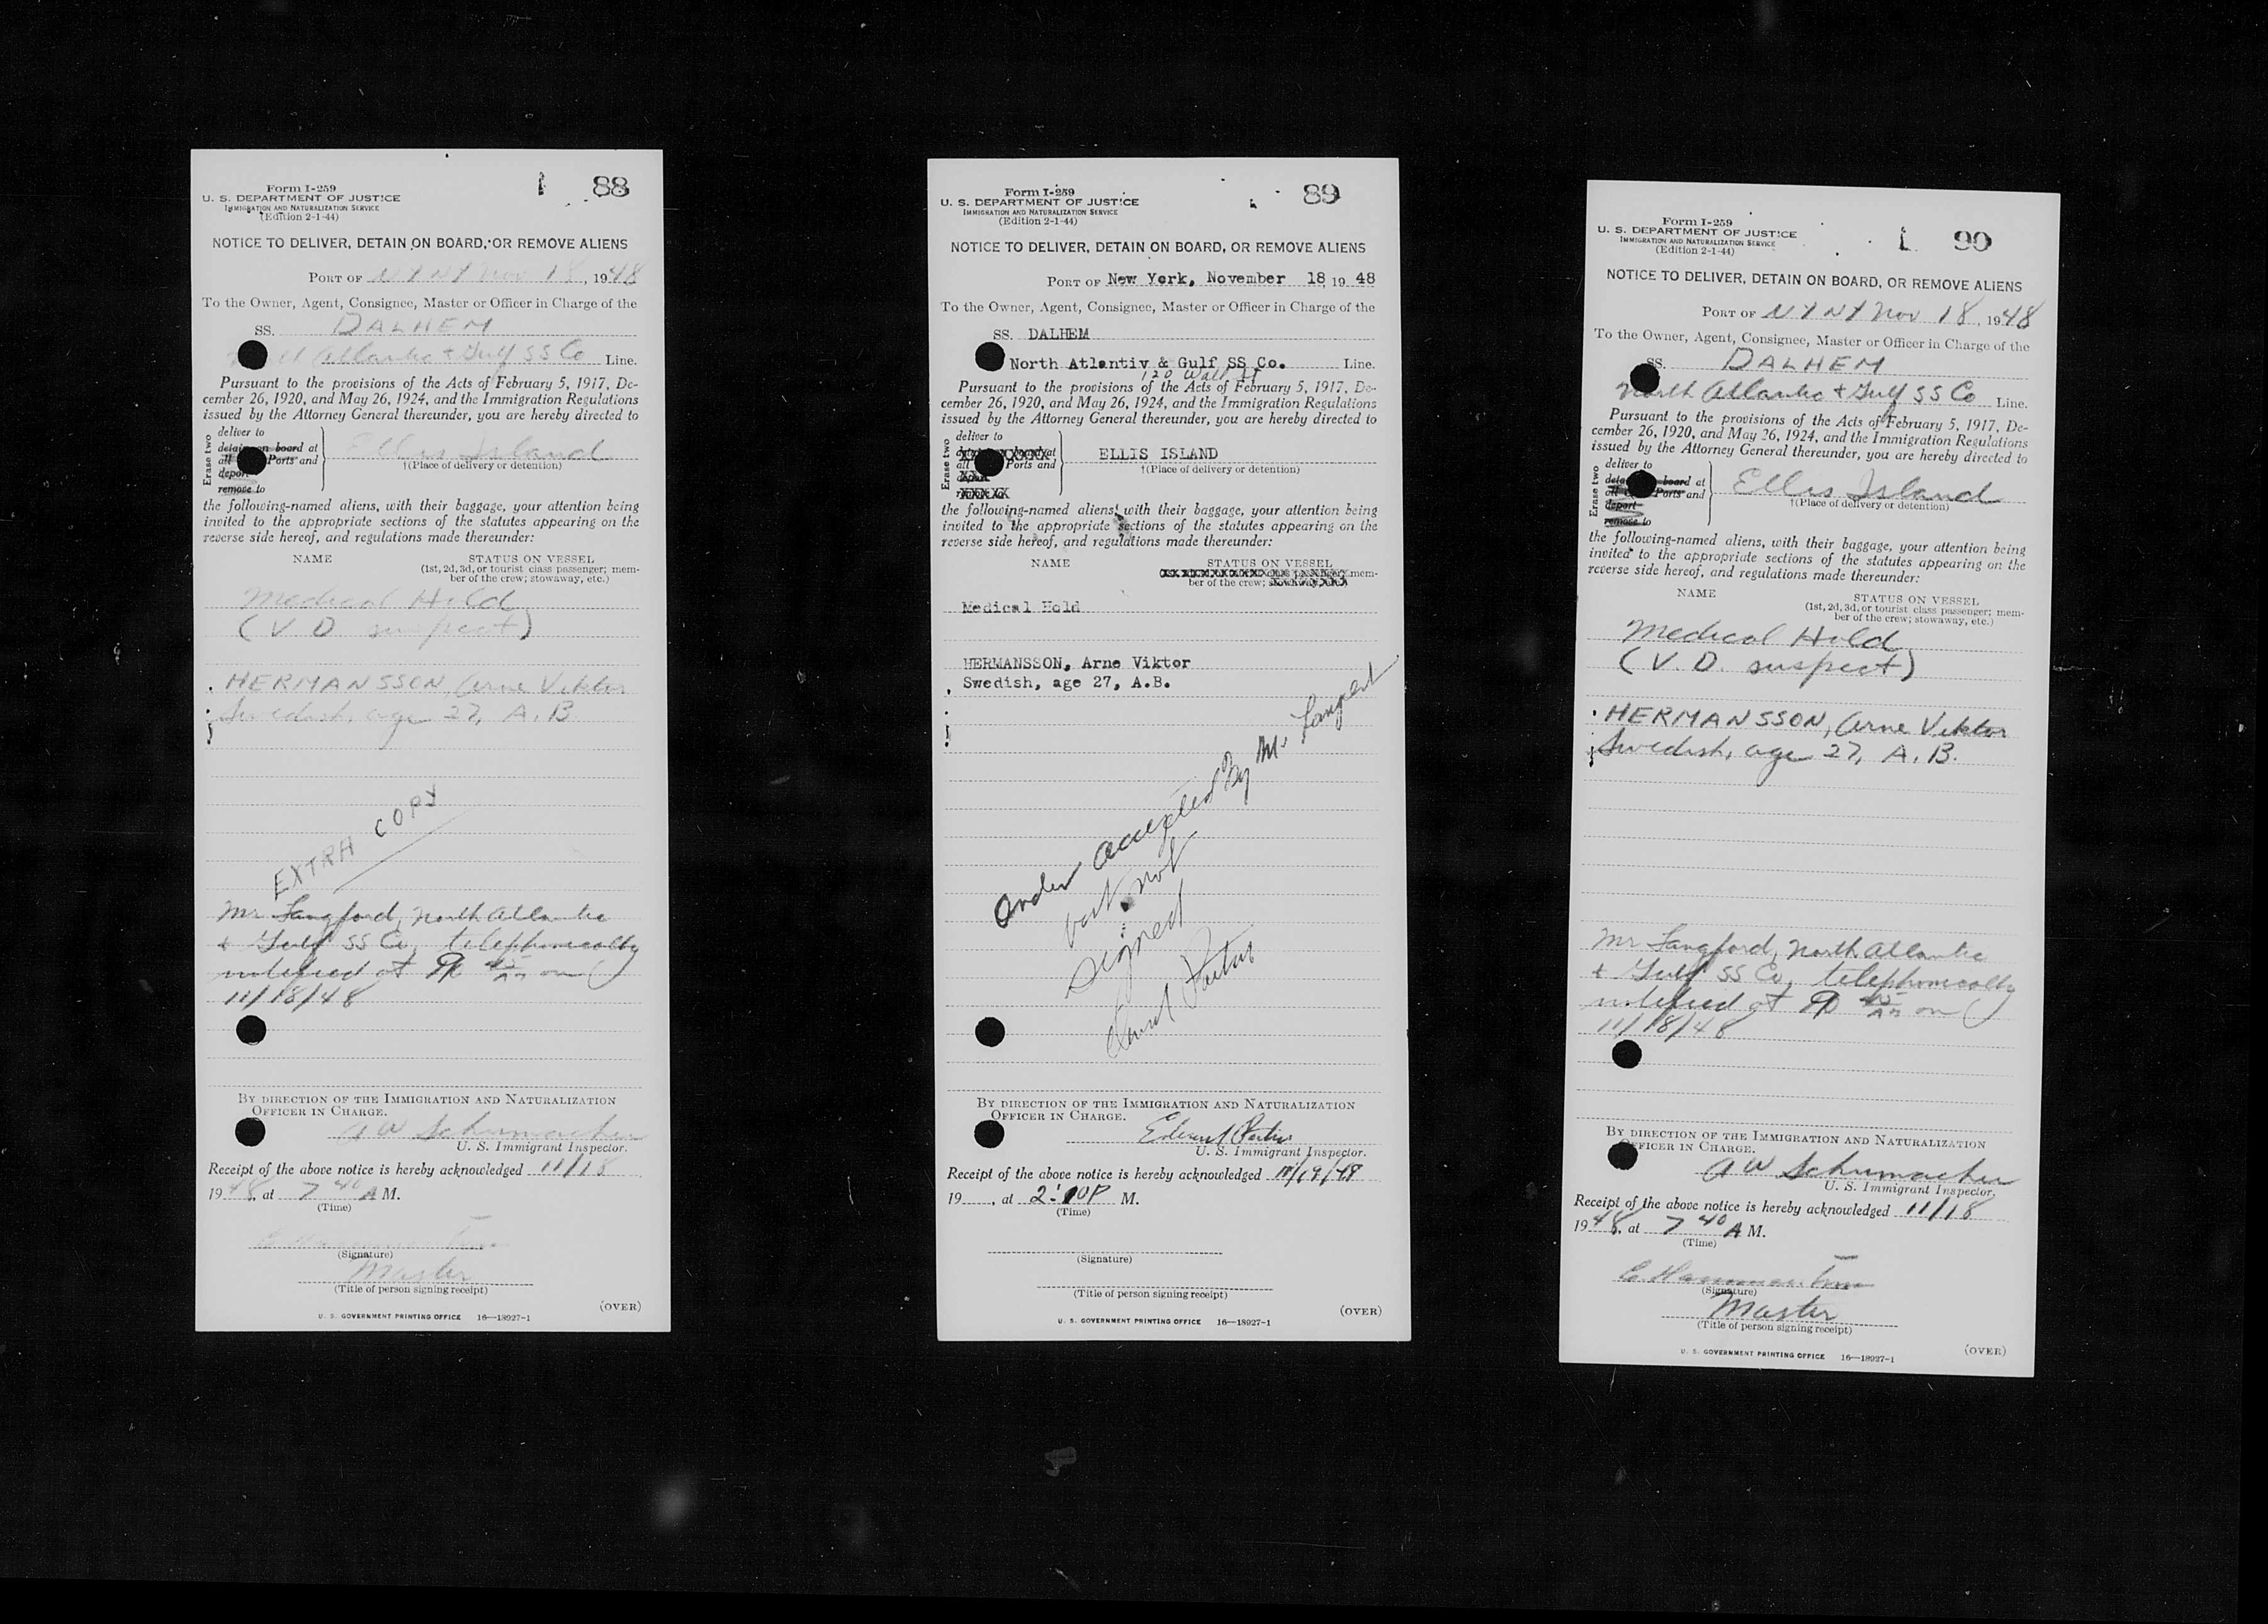 88
Form I-259
U. S. DEPARTMENT OF JUSTICE
IMMIGRATION AND NATURALIZATION SERVICE
(Edition 2-1-44)
NOTICE TO DELIVER, DETAIN ON BOARD, OR REMOVE ALIENS
PORT OF N Y N Y Nov 18, 1948
To the Owner, Agent, Consignee, Master or Officer in Charge of the
SS. DALHEM
Atlantic + Gulf SS Co Line.
Pursuant to the provisions of the Acts of February 5, 1917, De-
cember 26, 1920, and May 26, 1924, and the Immigration Regulations
issued by the Attorney General thereunder, you are hereby directed to
Erase two
deliver to
detain on board at
all Ports and
deport
remove to
Ellis Island
†(Place of delivery or detention)
the following-named aliens, with their baggage, your attention being
invited to the appropriate sections of the statutes appearing on the
reverse side hereof, and regulations made thereunder:
NAME STATUS ON VESSEL
(1st, 2d, 3d, or tourist class passenger; mem-
ber of the crew; stowaway, etc.)
Medical Hold
(V. D. suspect)
HERMANSSON, Arne Viktor
Swedish, age 27, A. B.
EXTRA COPY
Mr Langford, North Atlantic
+ Gulf SS Co, telephonically
notified at 45 AM on
11/18/48
BY DIRECTION OF THE IMMIGRATION AND NATURALIZATION
OFFICER IN CHARGE.
A W Schumacher
U. S. Immigrant Inspector.
Receipt of the above notice is hereby acknowledged 11/18
1948, at 7 40 A M.
(Time)
(Signature)
Master
(Title of person signing receipt)
(OVER)
U. S. GOVERNMENT PRINTING OFFICE 16—18927-1
89
Form I-259
U. S. DEPARTMENT OF JUSTICE
IMMIGRATION AND NATURALIZATION SERVICE
(Edition 2-1-44)
NOTICE TO DELIVER, DETAIN ON BOARD, OR REMOVE ALIENS
PORT OF New York, November 18 19 48
To the Owner, Agent, Consignee, Master or Officer in Charge of the
SS. DALHEM
North Atlantiv & Gulf SS Co. Line.
120 Wall St
Pursuant to the provisions of the Acts of February 5, 1917, De-
cember 26, 1920, and May 26, 1924, and the Immigration Regulations
issued by the Attorney General thereunder, you are hereby directed to
Erase two
deliver to
board at
all Ports and
deport
remove to
ELLIS ISLAND
†(Place of delivery or detention)
the following-named aliens, with their baggage, your attention being
invited to the appropriate sections of the statutes appearing on the
reverse side hereof, and regulations made thereunder:
NAME STATUS ON VESSEL
mem-
ber of the crew;
Medical Hold
HERMANSSON, Arne Viktor
Swedish, age 27, A.B.
Order accepted By Mr.
but not
signed
BY DIRECTION OF THE IMMIGRATION AND NATURALIZATION
OFFICER IN CHARGE.
U. S. Immigrant Inspector.
Receipt of the above notice is hereby acknowledged 11/19/48
19 , at 2:10P M.
(Time)
(Signature)
(Title of person signing receipt)
(OVER)
U. S. GOVERNMENT PRINTING OFFICE 16—18927-1
90
Form I-259
U. S. DEPARTMENT OF JUSTICE
IMMIGRATION AND NATURALIZATION SERVICE
(Edition 2-1-44)
NOTICE TO DELIVER, DETAIN ON BOARD, OR REMOVE ALIENS
PORT OF N Y N Y Nov 18, 1948
To the Owner, Agent, Consignee, Master or Officer in Charge of the
SS. DALHEM
North Atlantic + Gulf SS Co Line.
Pursuant to the provisions of the Acts of February 5, 1917, De-
cember 26, 1920, and May 26, 1924, and the Immigration Regulations
issued by the Attorney General thereunder, you are hereby directed to
Erase two
deliver to
board at
all Ports and
deport
remove to
Ellis Island
†(Place of delivery or detention)
the following-named aliens, with their baggage, your attention being
invited to the appropriate sections of the statutes appearing on the
reverse side hereof, and regulations made thereunder:
NAME STATUS ON VESSEL
(1st, 2d, 3d, or tourist class passenger; mem-
ber of the crew; stowaway, etc.)
Medical Hold
(V. D. suspect)
HERMANSSON, Arne Viktor
Swedish, age 27, A. B.
Mr Langford, North Atlantic
+ Gulf SS Co, telephonically
notified at 45 AM on
11/18/48
BY DIRECTION OF THE IMMIGRATION AND NATURALIZATION
OFFICER IN CHARGE.
A W Schumacher
U. S. Immigrant Inspector.
Receipt of the above notice is hereby acknowledged 11/18
1948, at 7 40 A M.
(Time)
(Signature)
Master
(Title of person signing receipt)
(OVER)
U. S. GOVERNMENT PRINTING OFFICE 16—18927-1